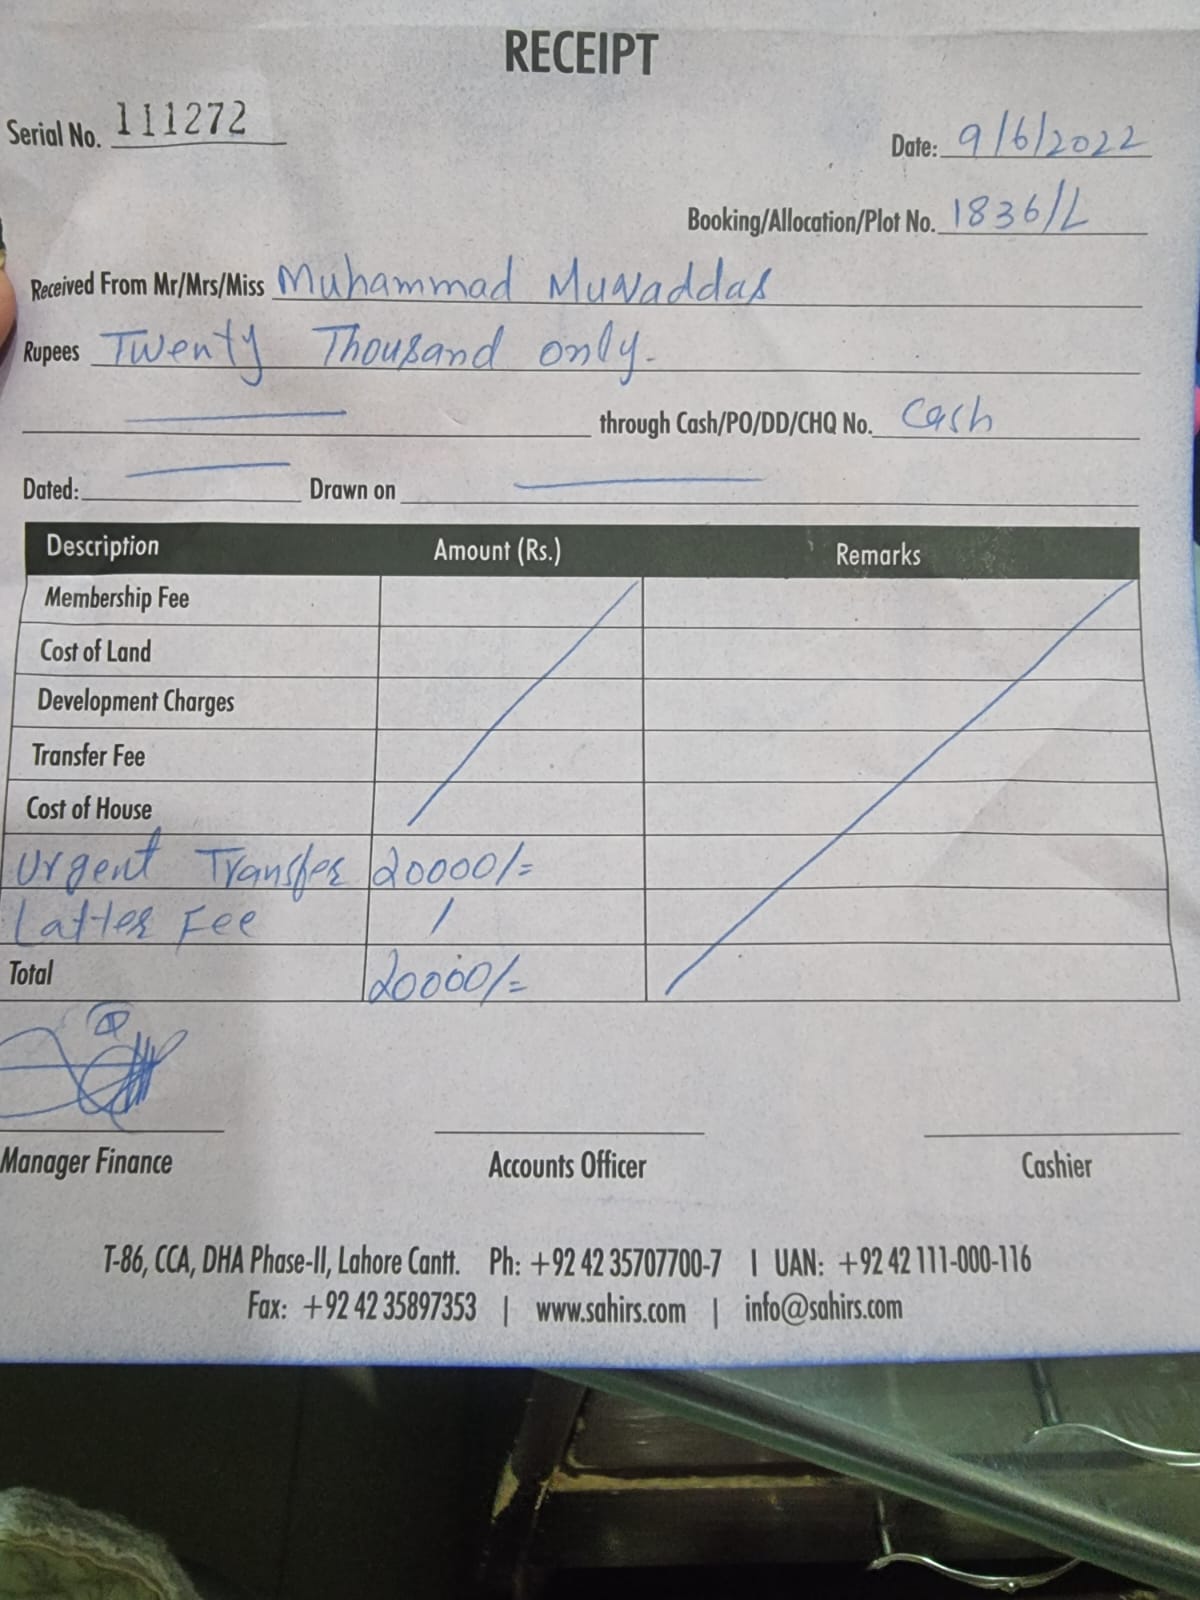 RECEIPT
Serial No. 111272
Date: 9/6/2022
Booking/Allocation/Plot No. 1836/L
Received From Mr/Mrs/Miss Muhammad Muvaddas
Rupees Twenty Thousand only.
through Cash/PO/DD/CHQ No. Cash
Dated: Drawn on
Description Amount (Rs.) Remarks
Membership Fee
Cost of Land
Development Charges
Transfer Fee
Cost of House
Urgent Transfer 20000/=
Latter Fee /
Total 20000/=
Manager Finance Accounts Officer Cashier
T-86, CCA, DHA Phase-II, Lahore Cantt. Ph: +92 42 35707700-7 | UAN: +92 42 111-000-116
Fax: +92 42 35897353 | www.sahirs.com | info@sahirs.com